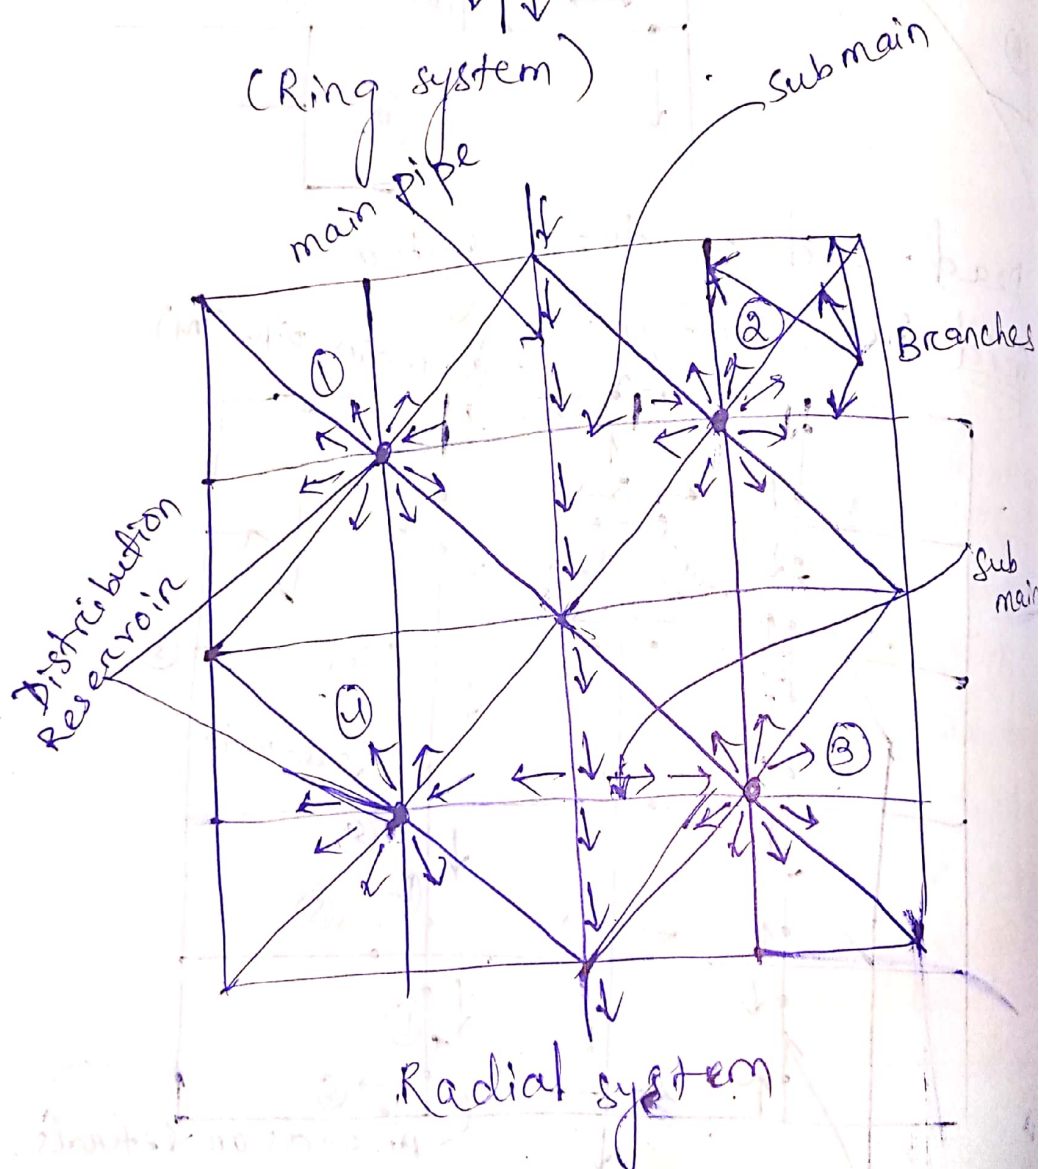 (Ring system)
submain
main pipe
②
Branches
①
Distribution
Reservoir
sub
main
④
③
Radial system